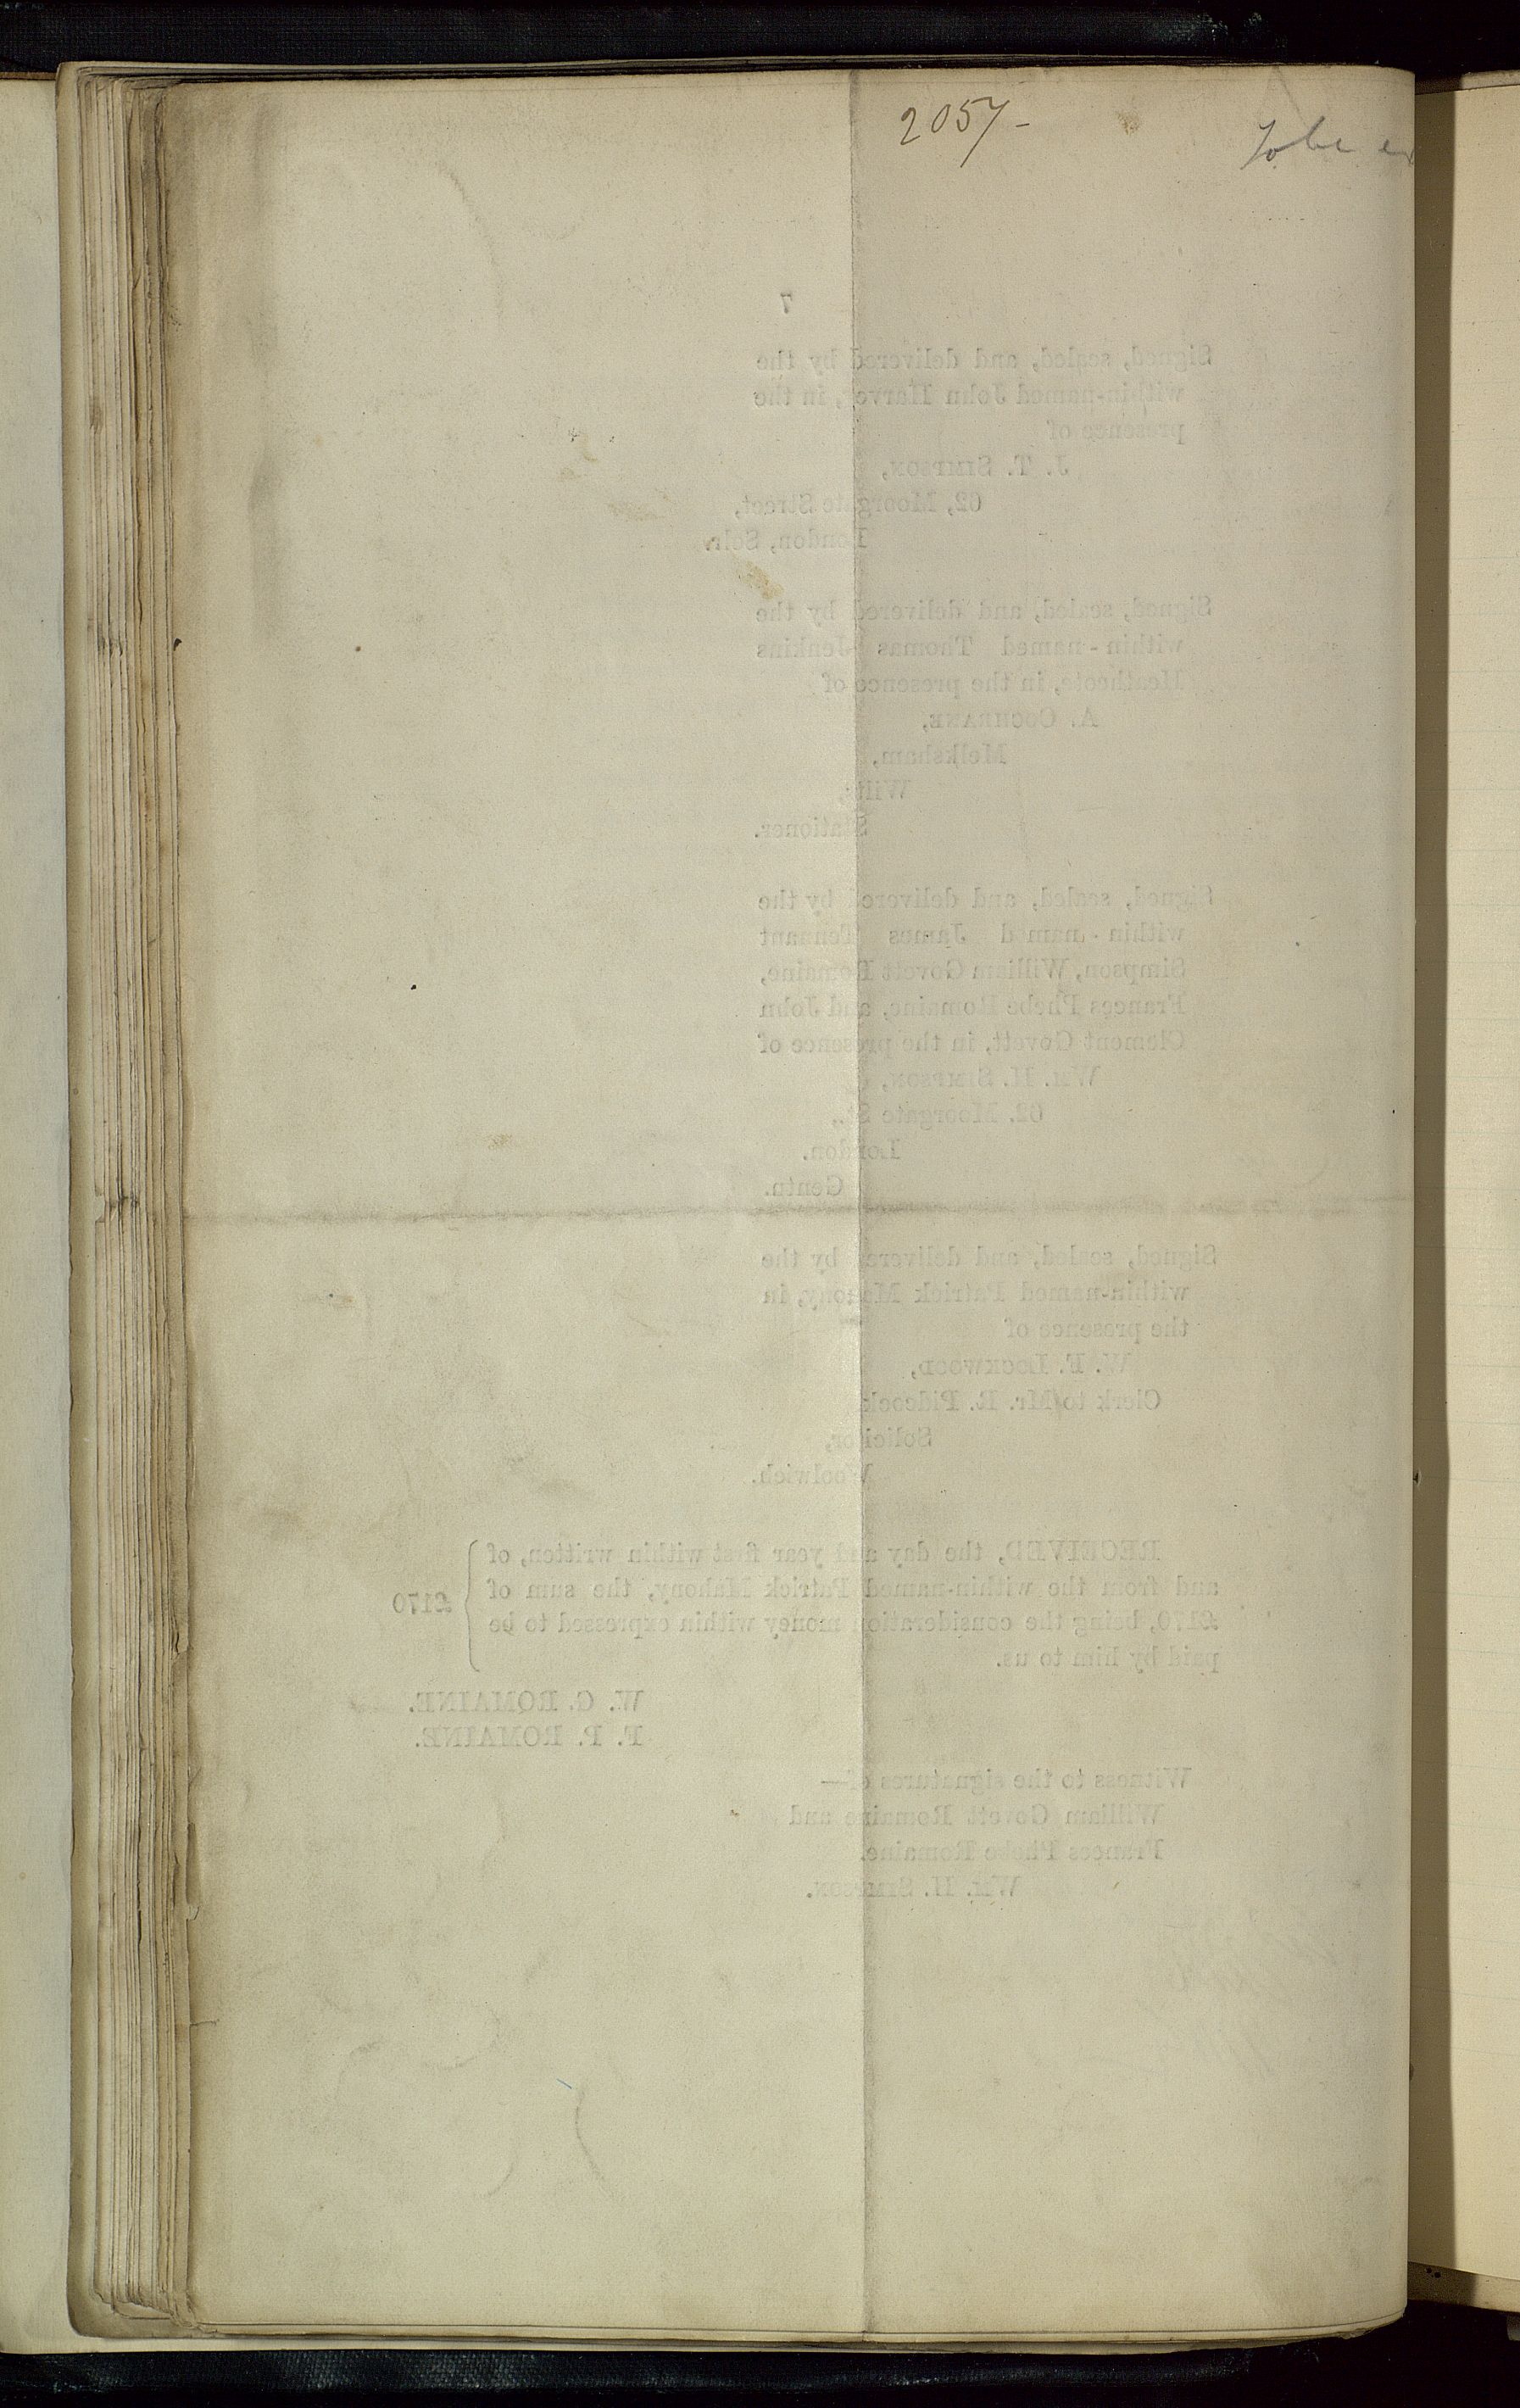 2057-
To be
7
Signed, sealed, and delivered by the
within-named John Harvey, in the
presence of
J. T. SIMPSON,
62, Moorgate Street,
London, Solr.
Signed, sealed, and delivered by the
within-named Thomas Jenkins
Heathcote, in the presence of
A. COCHRANE,
Melksham,
Wilts,
Stationer.
Signed, sealed, and delivered by the
within-named James Tennant
Simpson, William Govett Romaine,
Frances Phebe Romaine, and John
Clement Govett, in the presence of
WM. H. SIMPSON,
62. Moorgate St.,
London.
Gentn.
Signed, sealed, and delivered by the
within-named Patrick Mahony, in
the presence of
W. F. LOCKWOOD,
Clerk to Mr. R. Pidcock
Solicitor,
Woolwich.
RECEIVED, the day and year first within written, of
and from the within-named Patrick Mahony, the sum of
£170, being the consideration money within expressed to be
paid by him to us.
£170
W. G. ROMAINE.
F. P. ROMAINE.
Witness to the signatures of—
William Govett Romaine and
Frances Phebe Romaine.
WM. H. SIMPSON.